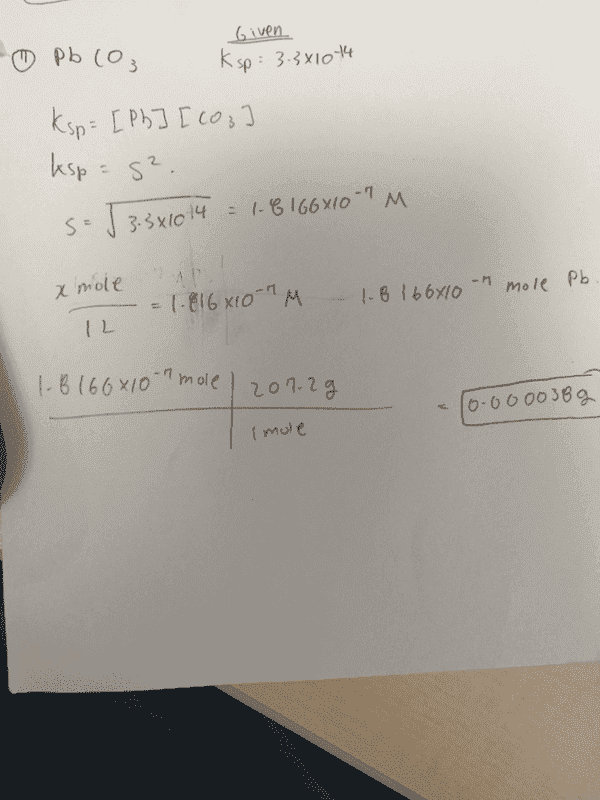 Given
⑦ Pb CO3 Ksp: 3.3x10^-14
Ksp = [Pb] [CO3]
Ksp = S².
S = √3.3x10^-14 = 1.8166x10^-7 M
x mole / 1 L = 1.816 x10^-7 M 1.8166x10^-7 mole Pb.
1.8166x10^-7 mole | 207.2g
1 mole
= 0.000038g